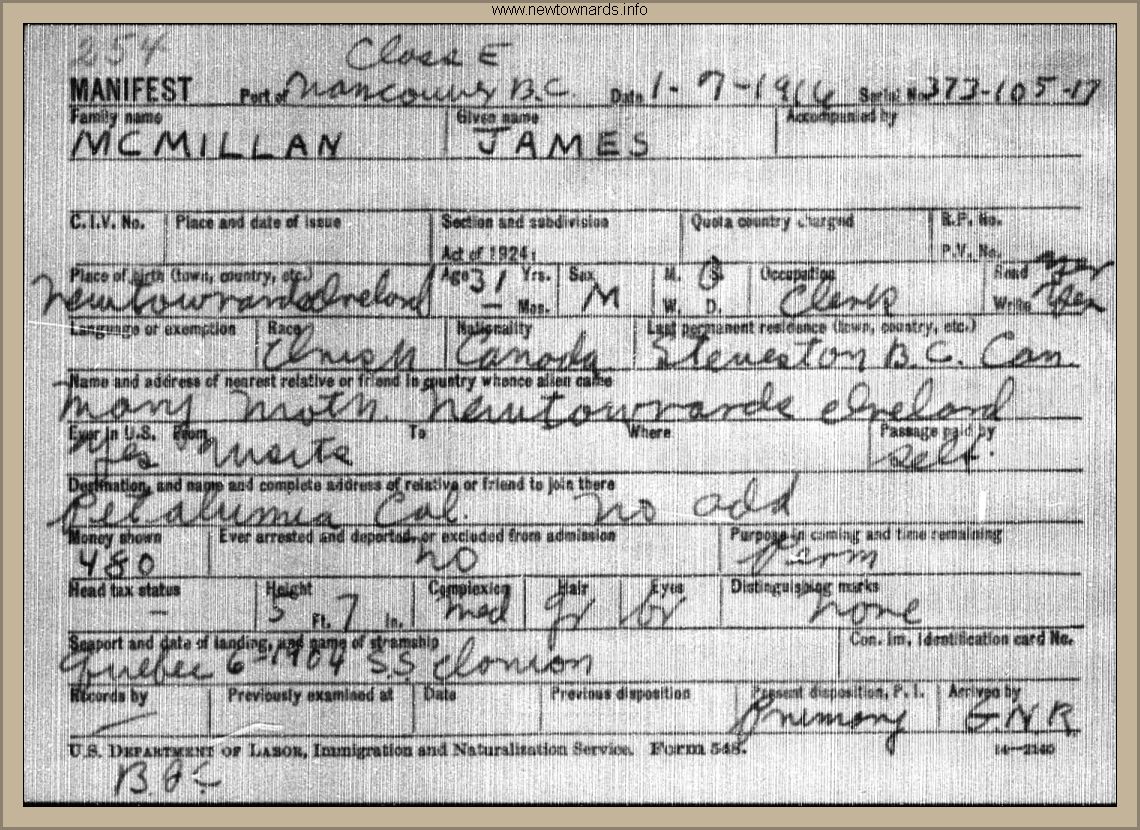 www.newtownards.info
254 Class E
MANIFEST Port of Vancouver B.C. Date 1-7-1916 Serial No. 373-105-17
Family name Given name Accompanied by
MCMILLAN JAMES
C.I.V. No. Place and date of issue Section and subdivision Quota country charged R.P. No.
Act of 1924: P.V. No.
Place of birth (town, country, etc.) Age 31 Yrs. Sex M. S. Occupation Read yes
Newtownards Ireland — Mos. M W. D. Clerk Write Yes
Language or exemption Race Nationality Last permanent residence (town, country, etc.)
Irish Canada Steveston B.C. Can.
Name and address of nearest relative or friend in country whence alien came
Mary Moth. Newtownards Ireland
Ever in U.S. From To Where Passage paid by
Yes Visits self.
Destination, and name and complete address of relative or friend to join there
Petalumia Cal. no add
Money shown Ever arrested and deported, or excluded from admission Purpose in coming and time remaining
480 no perm
Head tax status Height Complexion Hair Eyes Distinguishing marks
— 5 Ft. 7 In. med gr br none
Seaport and date of landing, and name of steamship Con. Im. Identification card No.
Quebec 6-1904 S.S. Ionion
Records by Previously examined at Date Previous disposition Present disposition, P. I. Arrived by
— Primary G.N.R.
U.S. DEPARTMENT OF LABOR, Immigration and Naturalization Service. Form 548. 14—2140